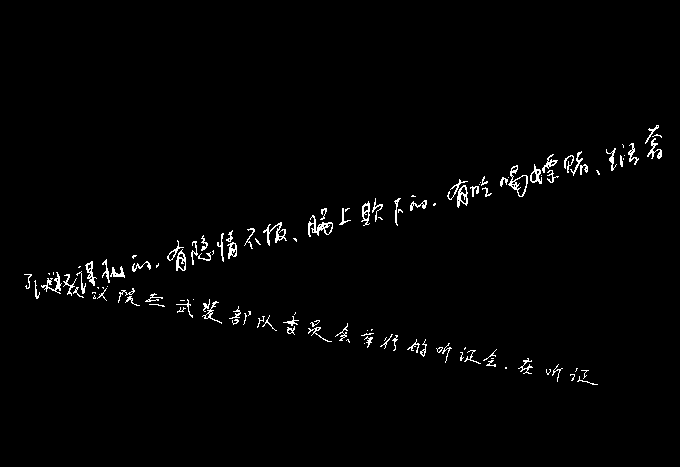 谋私的.有隐情不报、瞒上欺下的.有吃喝嫖赌、生活奢
议院三武装部队委员会举行的听证会.在听证